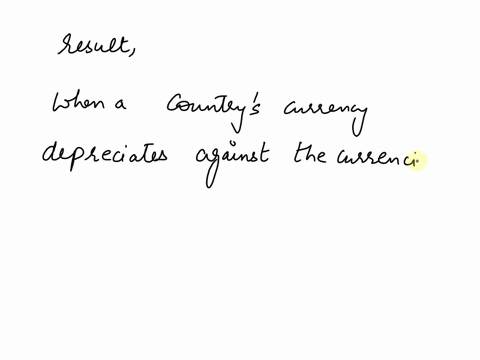 result,
When a Country's currency
depreciates against the currenci